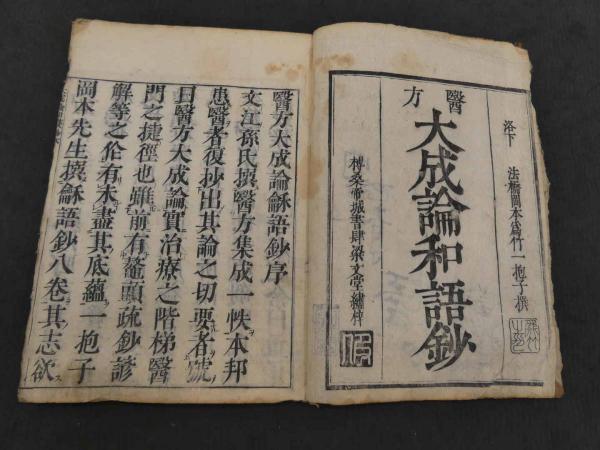 洛下 法橋岡本為竹一抱子撰
醫方
大成論和語鈔
榑桑帝城書肆梁文堂繡梓
醫方大成論龢語鈔序
文江孫氏撰醫方集成一帙本邦
患醫者復抄出其論之切要者號
曰醫方大成論實治療之階梯醫
門之捷徑也雖前有鼇頭疏鈔諺
解等之伀有未盡其底蘊一抱子
岡本先生撰龢語鈔八卷其志欲